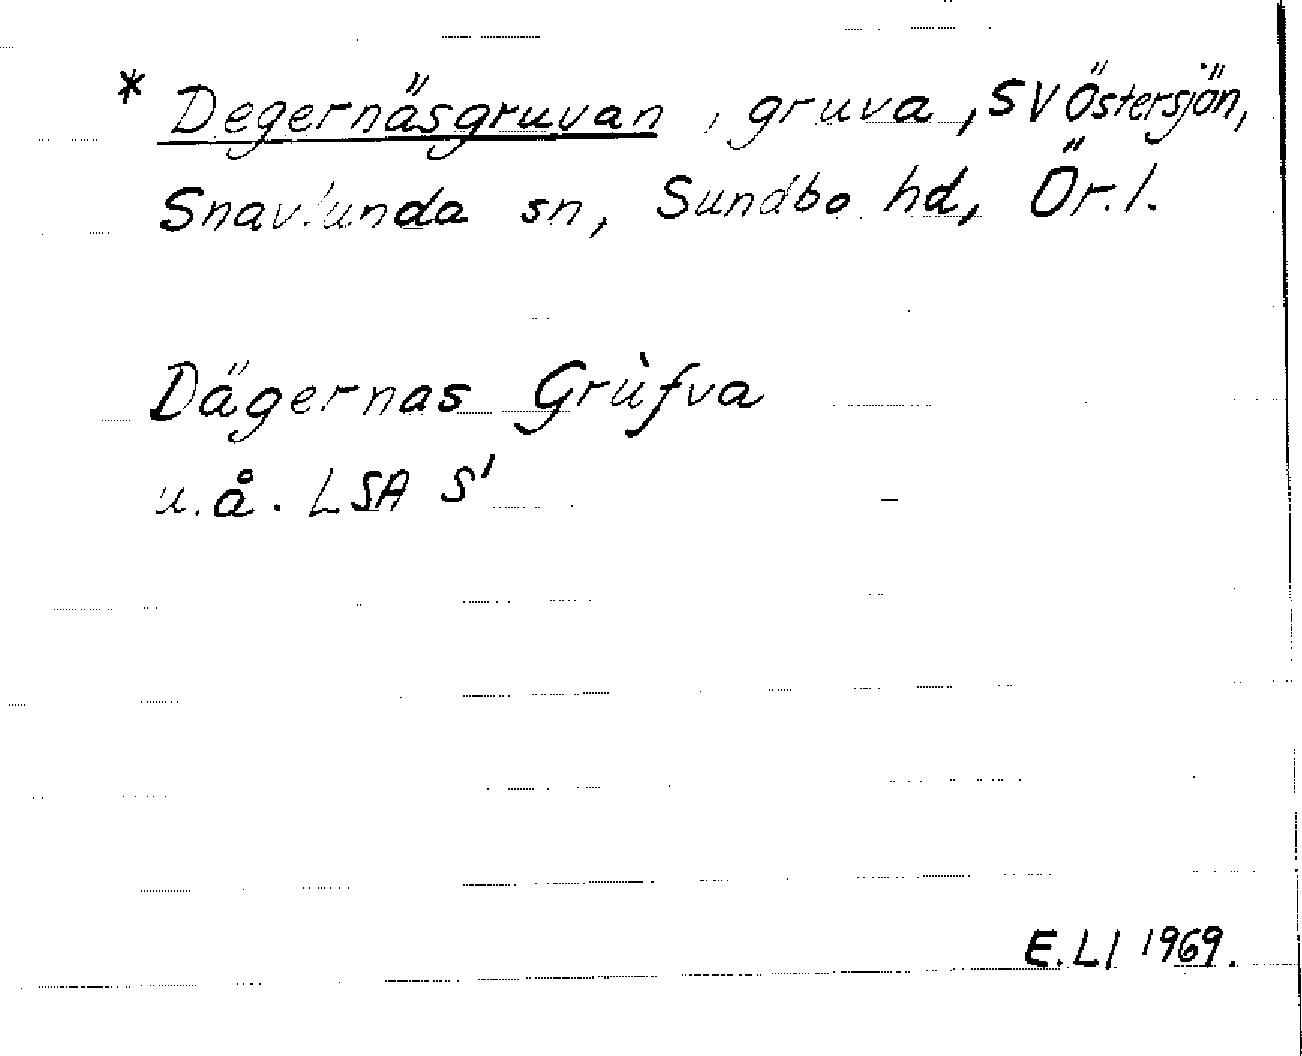 * Degernäsgruvan, gruva, SV Östersjön,
Snavlunda sn, Sundbo hd, Ör. l.
Dägernas Grùfva
u.å. LSA S'
E. Ll 1969.